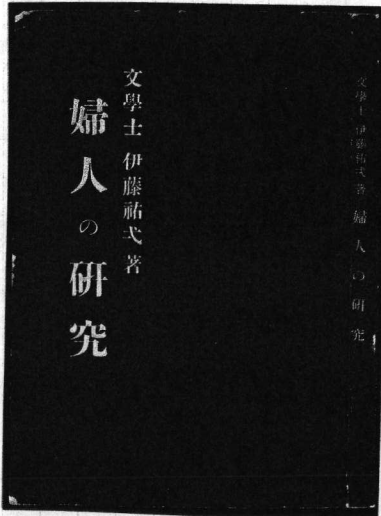 文學士 伊藤祐弌著
婦人の研究
文學士 伊藤祐弌著 婦人の研究